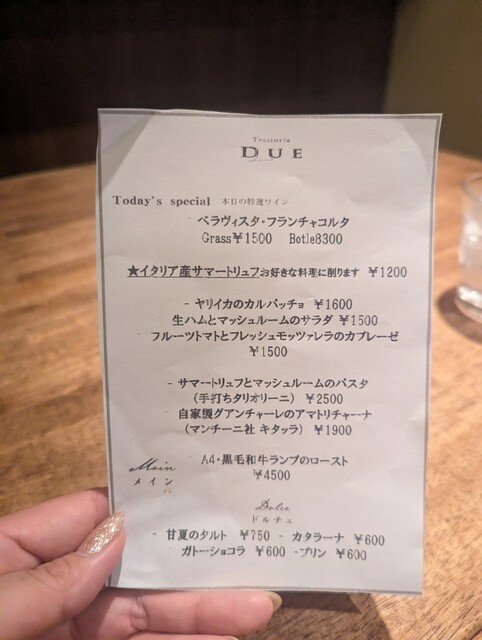 Trattoria
DUE
Today's special 本日の特選ワイン
ベラヴィスタ・フランチャコルタ
Grass¥1500 Botle8300
★イタリア産サマートリュフお好きな料理に削ります ¥1200
- ヤリイカのカルパッチョ ¥1600
生ハムとマッシュルームのサラダ ¥1500
フルーツトマトとフレッシュモッツァレラのカプレーゼ
¥1500
- サマートリュフとマッシュルームのパスタ
(手打ちタリオリーニ) ¥2500
自家製グアンチャーレのアマトリチャーナ
(マンチーニ社 キタッラ) ¥1900
Main
メイン
A4・黒毛和牛ランプのロースト
¥4500
Dolce
ドルチェ
- 甘夏のタルト ¥750 - カタラーナ ¥600
ガトーショコラ ¥600 -プリン ¥600